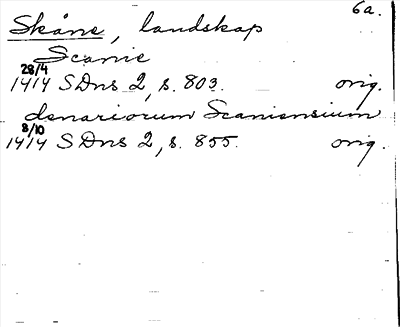 6a.
Skåne, landskap
Scanie
28/4
1414 SDns 2, s. 803. orig.
denariorum Scaniensium
8/10
1414 SDns 2, s. 855. orig.